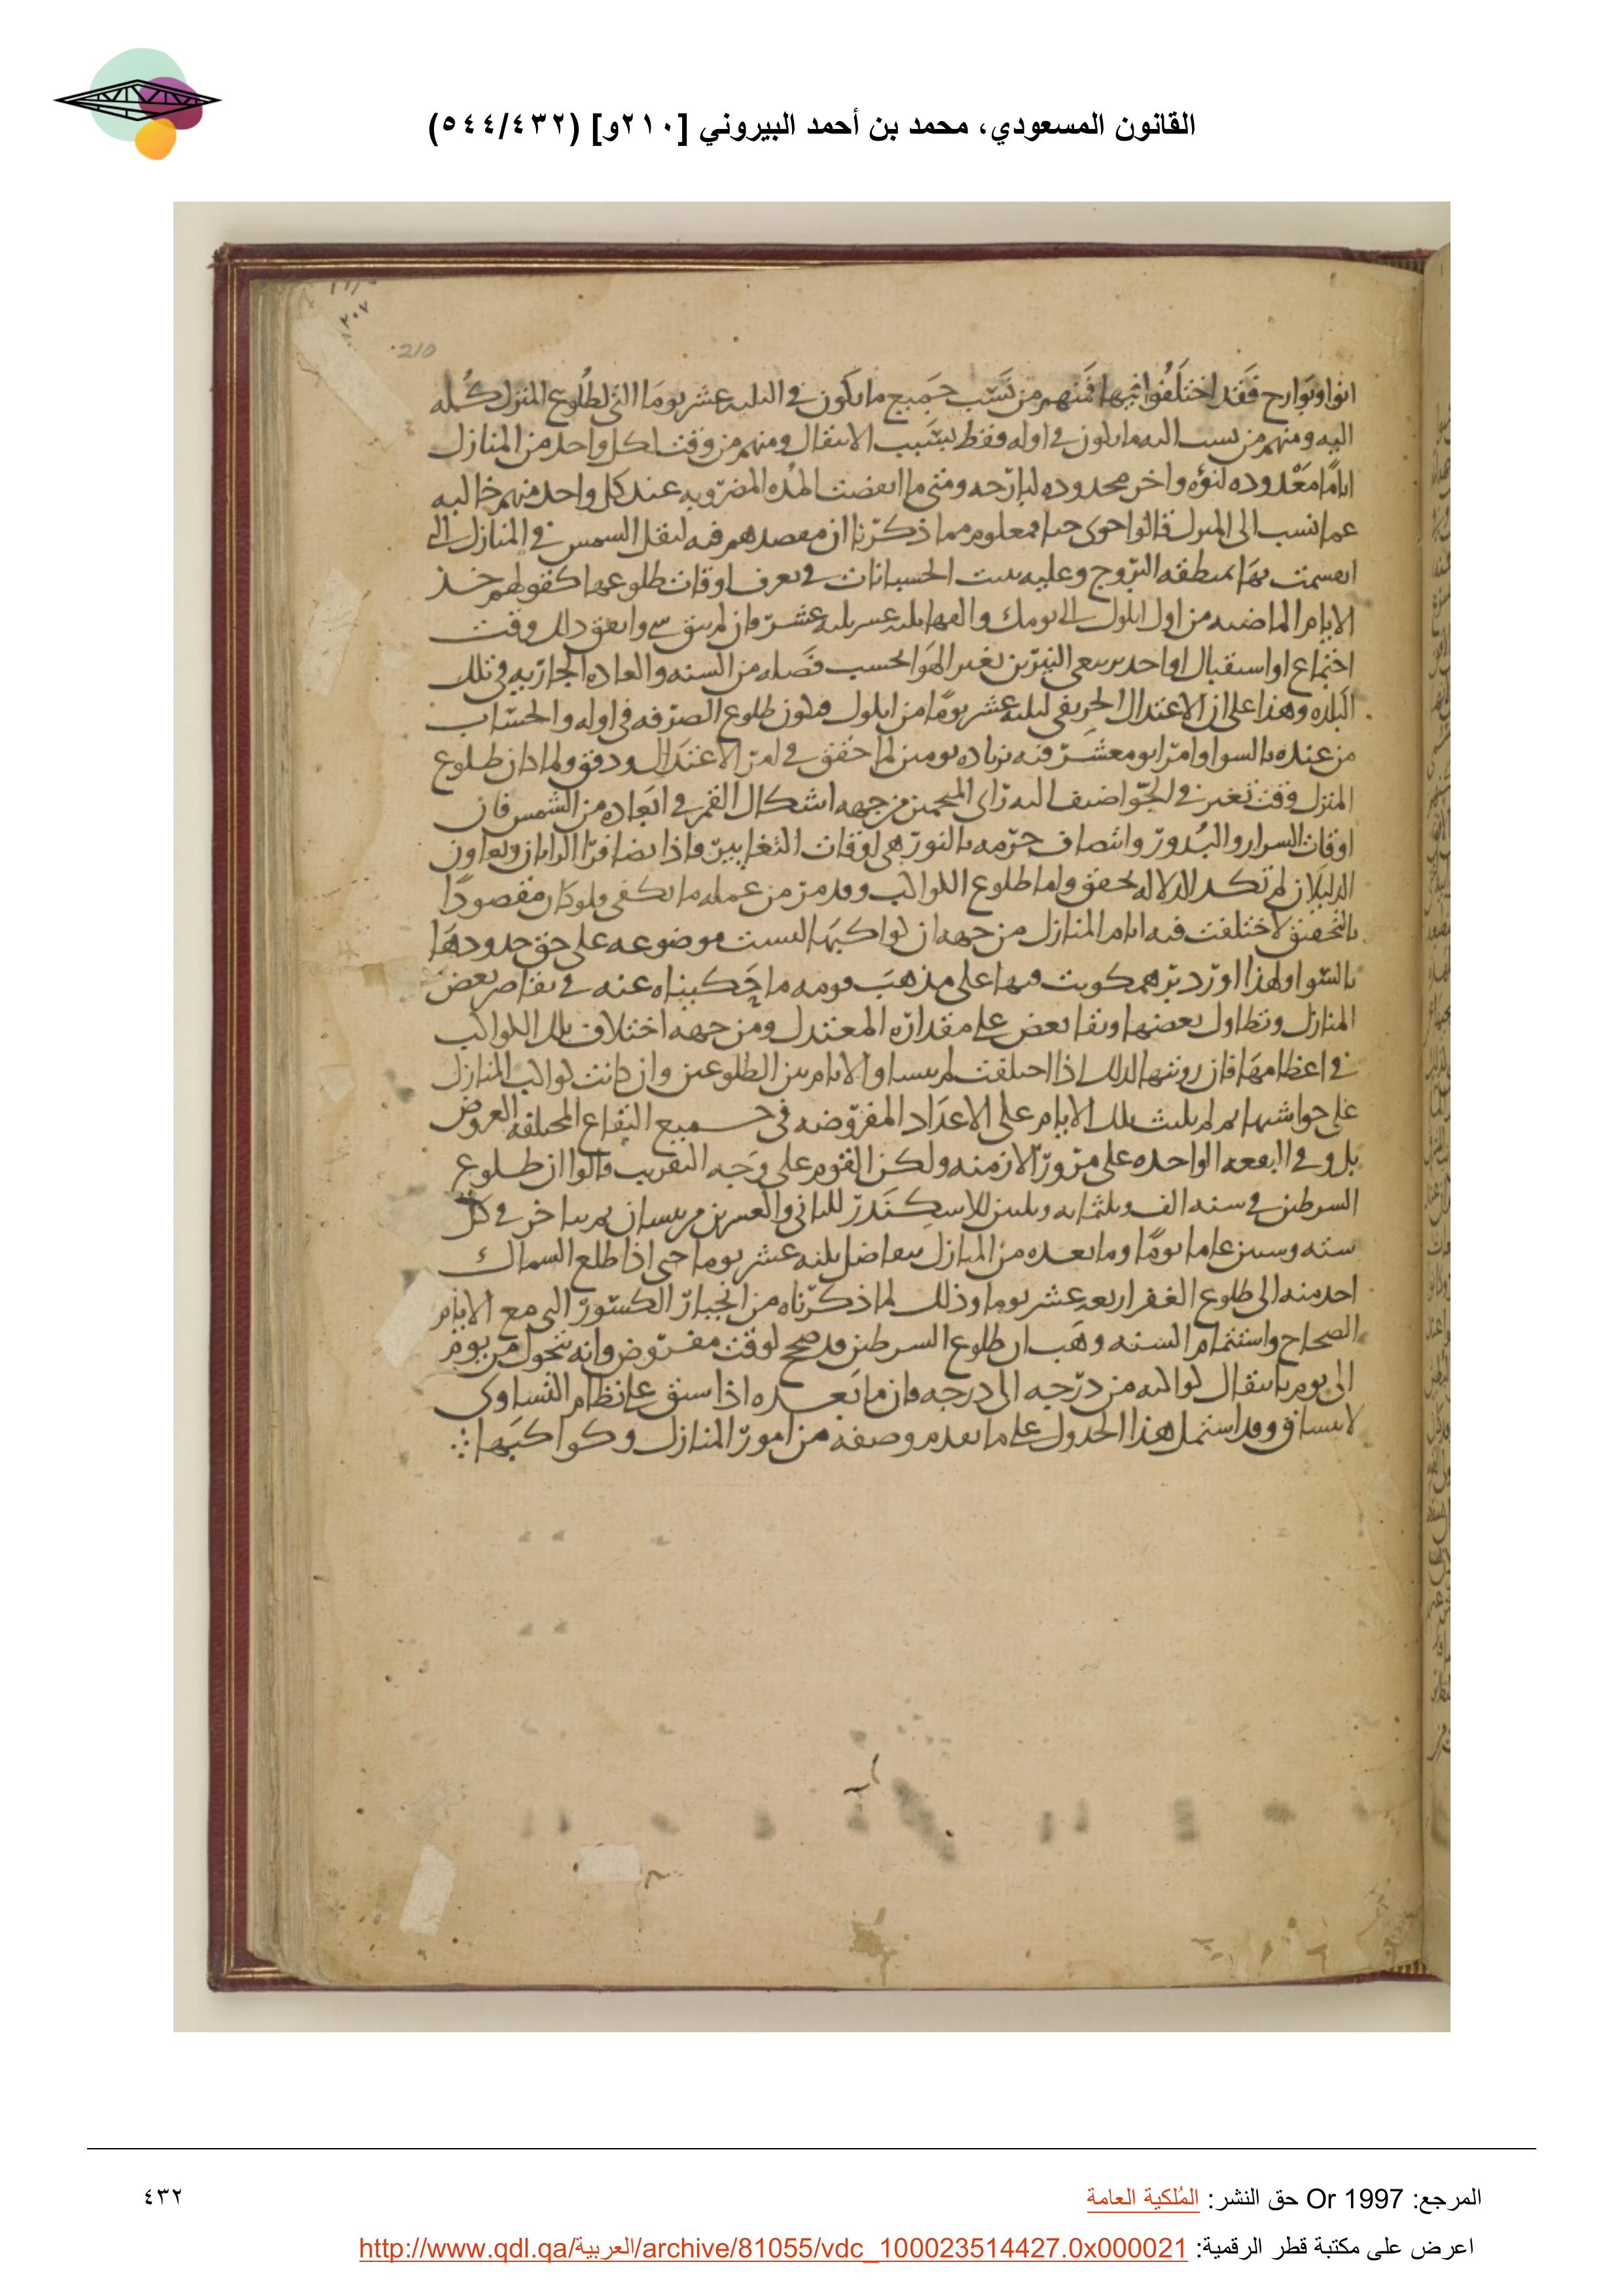 القانون المسعودي، محمد بن أحمد البيروني [٢١٠و] (٥٤٤/٤٣٢)
٢٠٧
210
انوا وبوارح فقد اختلفوا فيها فمنهم من نسب جميع ما يكون في الثلثه عشر يوما التي لطلوع المنزل كله
اليه ومنهم من نسب اليه ما يكون في اوله فقط بسبب الانتقال ومنهم من وقت لكل واحد من المنازل
اياما معدوده لنوءه واخر محدوده لبارحه ومتى ما انقضت المده المضروبه عند كل واحد منهم خاليه
عما نسب الى المنزل قالوا خوى ومعلوم مما ذكرنا ان مقصدهم فيه لنقل الشمس في المنازل التي
انقسمت بها منطقه البروج وعليه بنيت الحسبانات في تعرف اوقات طلوعها كقولهم خذ
الايام الماضيه من اول ايلول الى يومك والقها ثلثه عشر ثلثه عشر فان لم يبق شي واتفق ذلك وقت
اجتماع او استقبال او احد تربيعي النيرين تغير الهوا بحسب فصله من السنه والعاده الجاريه في تلك
البلده وهذا على ان الاعتدال الخريفي لثلثه عشر يوما من ايلول فيكون طلوع الصرفه في اوله والحساب
من عنده بالسوا وامر ابو معشر فيه بزياده يومين لما حقق في امر الاعتدال ودقق ولما كان طلوع
المنزل وقت تغير في الجو اضيف اليه راى المنجمين من جهه اشكال القمر في ابعاده من الشمس فان
اوقات السرار والبدور وانتصاف جرمه بالنور هي اوقات التغايير واذا تضافر الرايان وتعاون
الدليلان لم تكد الدلاله تخفق واما طلوع الكواكب وقد مر من عمله ما يكفي ولو كان مقصودا
بالتحقيق لاختلفت فيه ايام المنازل من جهه ان كواكبها ليست موضوعه على حق حدودها
بالسوا ولهذا اورد برهمكوبت فيها على مذهب قومه ما حكيناه عنه في تقاصر بعض
المنازل وتطاول بعضها وبقا بعض على مقداره المعتدل ومن جهه اختلاف تلك الكواكب
في اعظامها فان رويتها لذلك اذا اختلفت لم يتساو الايام بين الطلوعين وان كانت كواكب المنازل
على حواشيها ثم لم يلبث تلك الايام على الاعداد المفروضه في جميع البقاع المختلفه العروض
بل وفي البقعه الواحده على مرور الازمنه ولكن القوم على وجه التقريب قالوا ان طلوع
السرطين في سنه الف وثلثمايه وثلثين للاسكندر للثاني والعشرين من نيسان ثم يتاخر في كل
سته وستين عاما يوما وما بعده من المنازل يتفاضل بثلثه عشر يوما حتى اذا طلع السماك
اخذ منه الى طلوع الغفر اربعه عشر يوما وذلك لما ذكرناه من انجبار الكسور التي مع الايام
الصحاح واستتمام السنه وهب ان طلوع السرطين قد صح لوقت مفروض وانه يتحول من يوم
الى يوم بانتقال كواكبه من درجه الى درجه فان ما بعده اذا سبق على نظام التساوى
لا ينساق وقد اشتمل هذا الجدول على ما تقدم وصفه من امور المنازل وكواكبها
المرجع: Or 1997 حق النشر: المُلكية العامة
٤٣٢
اعرض على مكتبة قطر الرقمية: http://www.qdl.qa/العربية/archive/81055/vdc_100023514427.0x000021